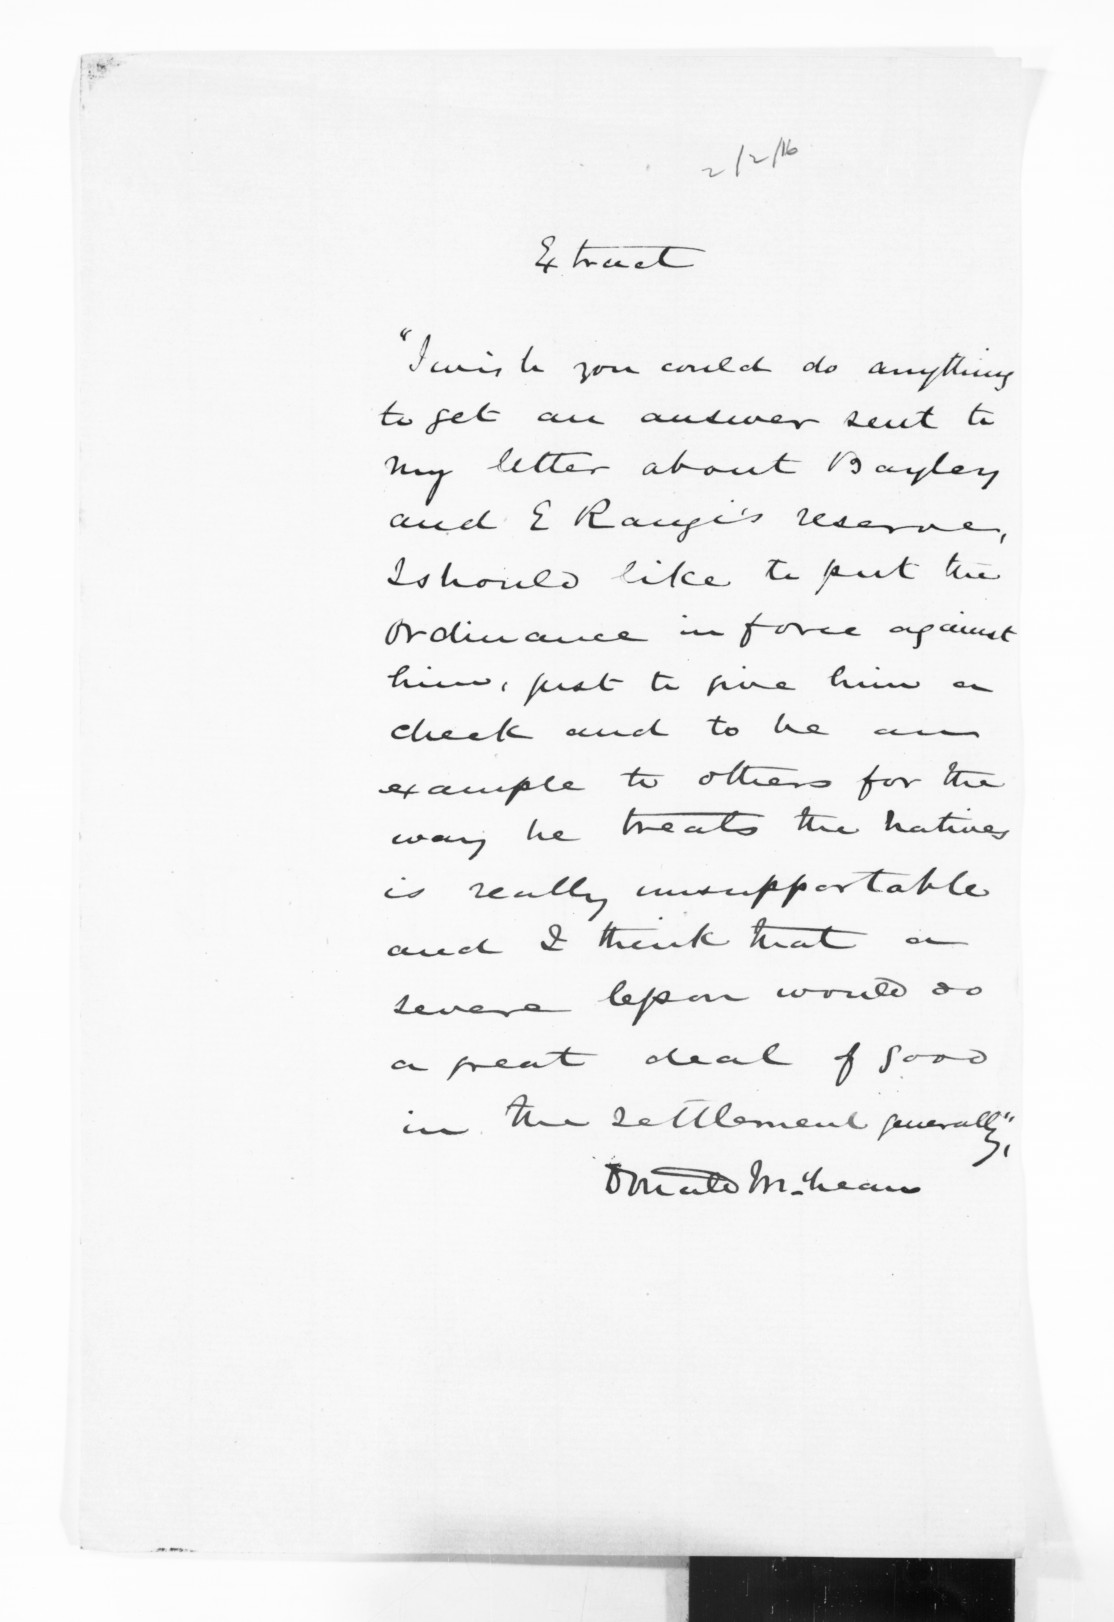 2/2/16
Extract
"I wish you could do anything
to get an answer sent to
my letter about Bayley
and E Rangi's reserve,
I should like to put the
Ordinance in force against
him, just to give him a
check and to be an
example to others for the
way he treats the natives
is really unsupportable
and I think that a
severe lesson would do
a great deal of good
in the settlement generally",
Donald McLean